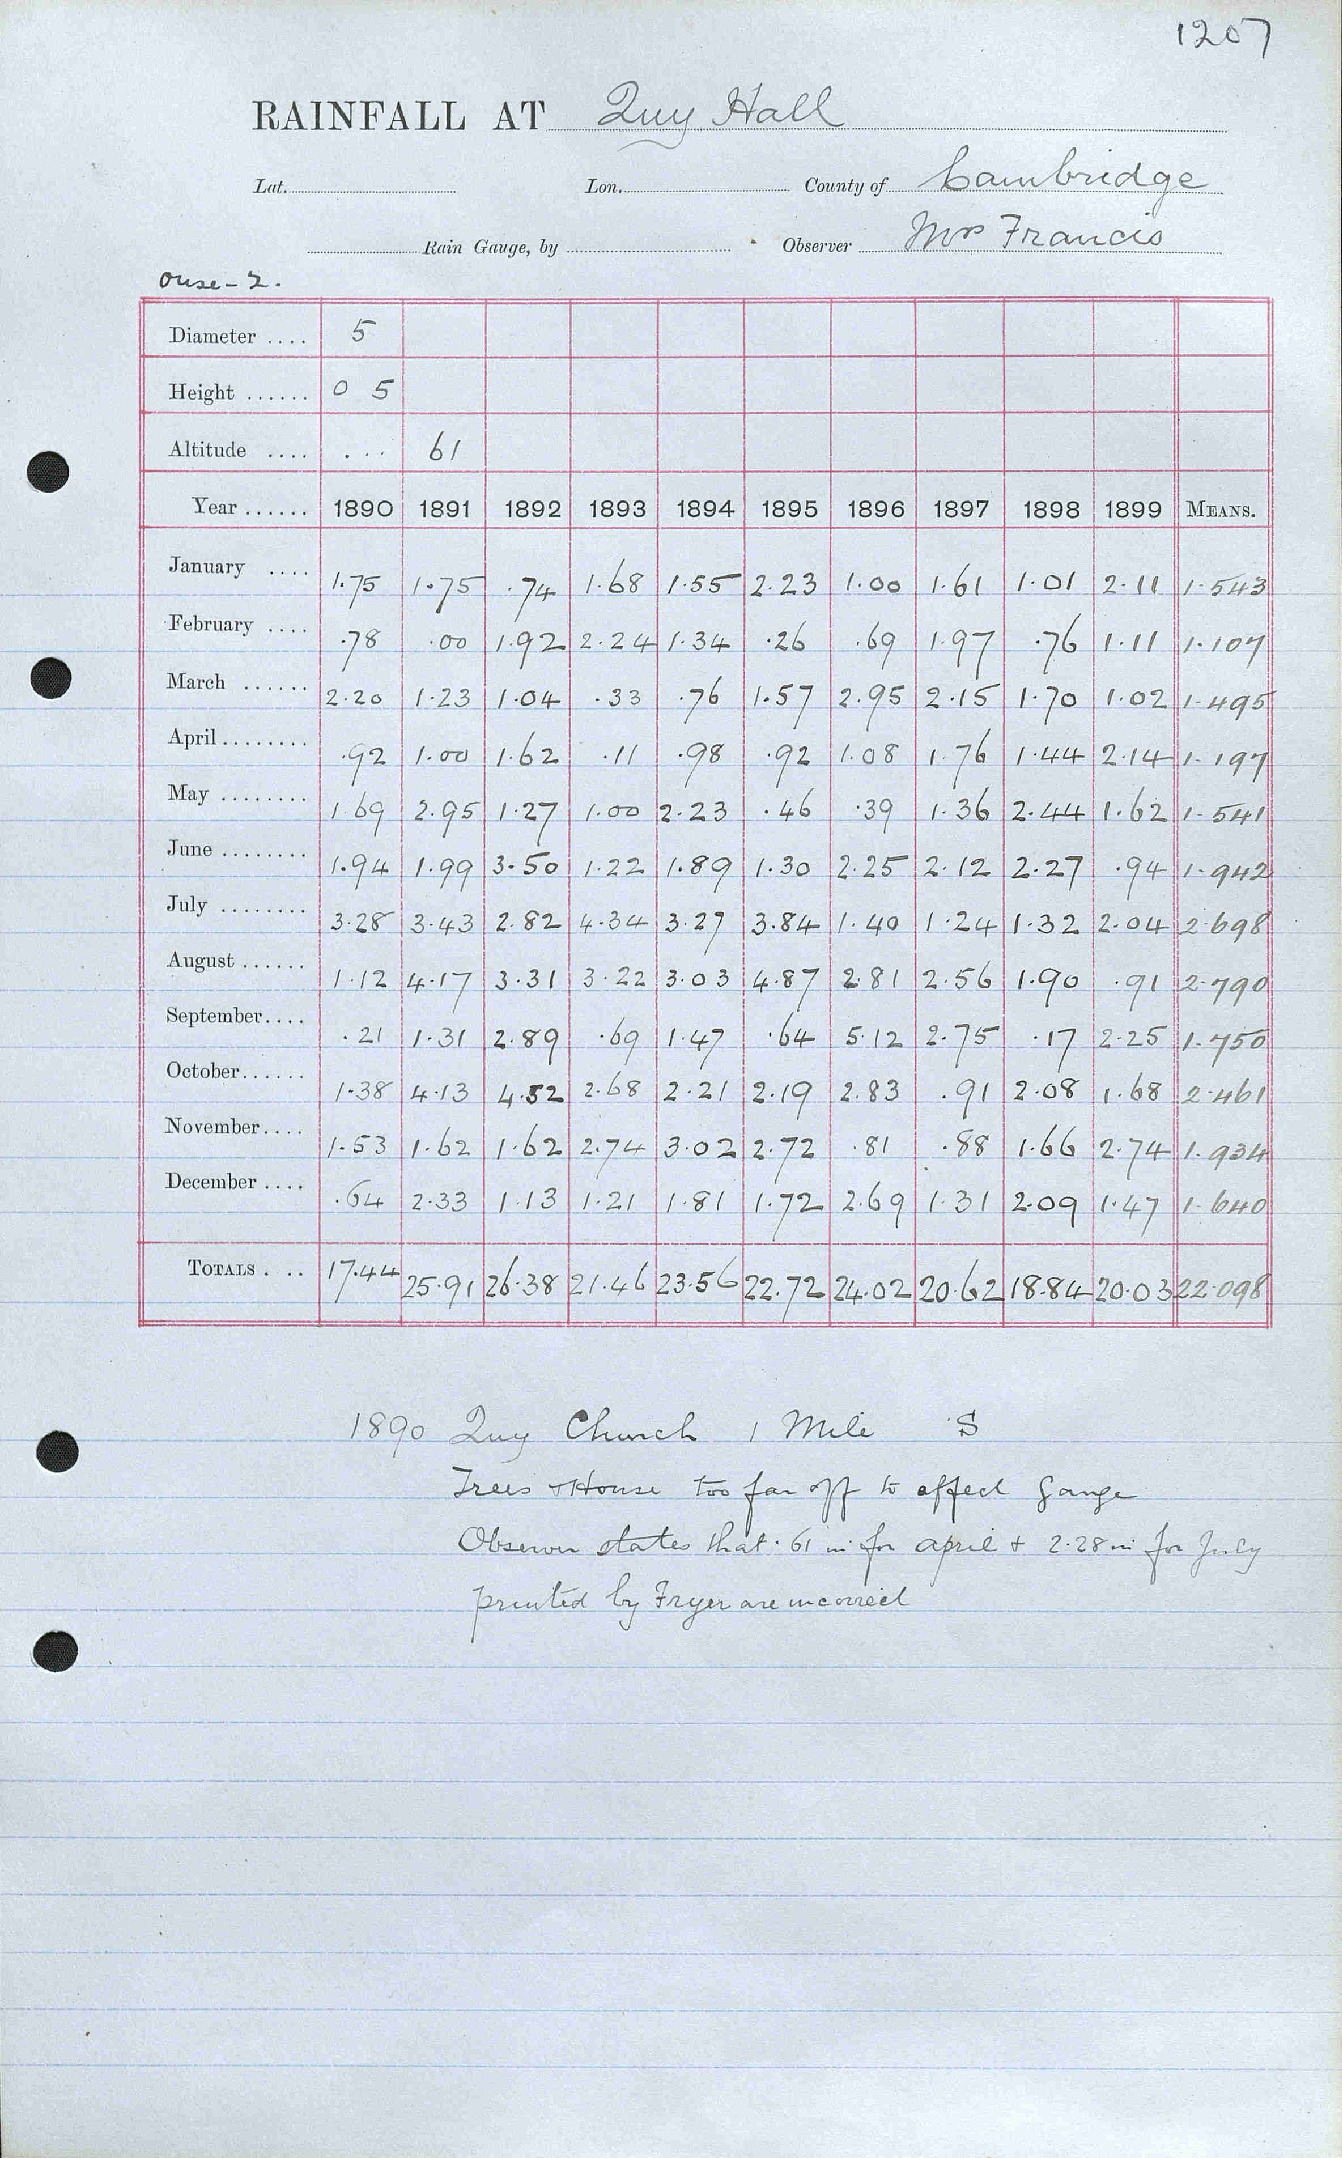 1207
RAINFALL AT Quy Hall
Lat. Lon. County of Cambridge
Rain Gauge, by Observer Mrs Francis
Ouse-2.
Diameter .... 5
Height ...... 0 5
Altitude .... ... 61
Year ...... 1890 1891 1892 1893 1894 1895 1896 1897 1898 1899 MEANS.
January .... 1.75 1.75 .74 1.68 1.55 2.23 1.00 1.61 1.01 2.11 1.543
February .... .78 .00 1.92 2.24 1.34 .26 .69 1.97 .76 1.11 1.107
March ...... 2.20 1.23 1.04 .33 .76 1.57 2.95 2.15 1.70 1.02 1.495
April........ .92 1.00 1.62 .11 .98 .92 1.08 1.76 1.44 2.14 1.197
May ........ 1.69 2.95 1.27 1.00 2.23 .46 .39 1.36 2.44 1.62 1.541
June ........ 1.94 1.99 3.50 1.22 1.89 1.30 2.25 2.12 2.27 .94 1.942
July ........ 3.28 3.43 2.82 4.34 3.27 3.84 1.40 1.24 1.32 2.04 2.698
August ...... 1.12 4.17 3.31 3.22 3.03 4.87 2.81 2.56 1.90 .91 2.790
September.... .21 1.31 2.89 .69 1.47 .64 5.12 2.75 .17 2.25 1.750
October...... 1.38 4.13 4.52 2.68 2.21 2.19 2.83 .91 2.08 1.68 2.461
November.... 1.53 1.62 1.62 2.74 3.02 2.72 .81 .88 1.66 2.74 1.934
December .... .64 2.33 1.13 1.21 1.81 1.72 2.69 1.31 2.09 1.47 1.640
TOTALS . .. 17.44 25.91 26.38 21.46 23.56 22.72 24.02 20.62 18.84 20.03 22.098
1890 Quy Church 1 Mile S
Trees & House too far off to affect Gauge
Observer states that .61 in for april & 2.28 in for July
printed by Fryer are incorrect